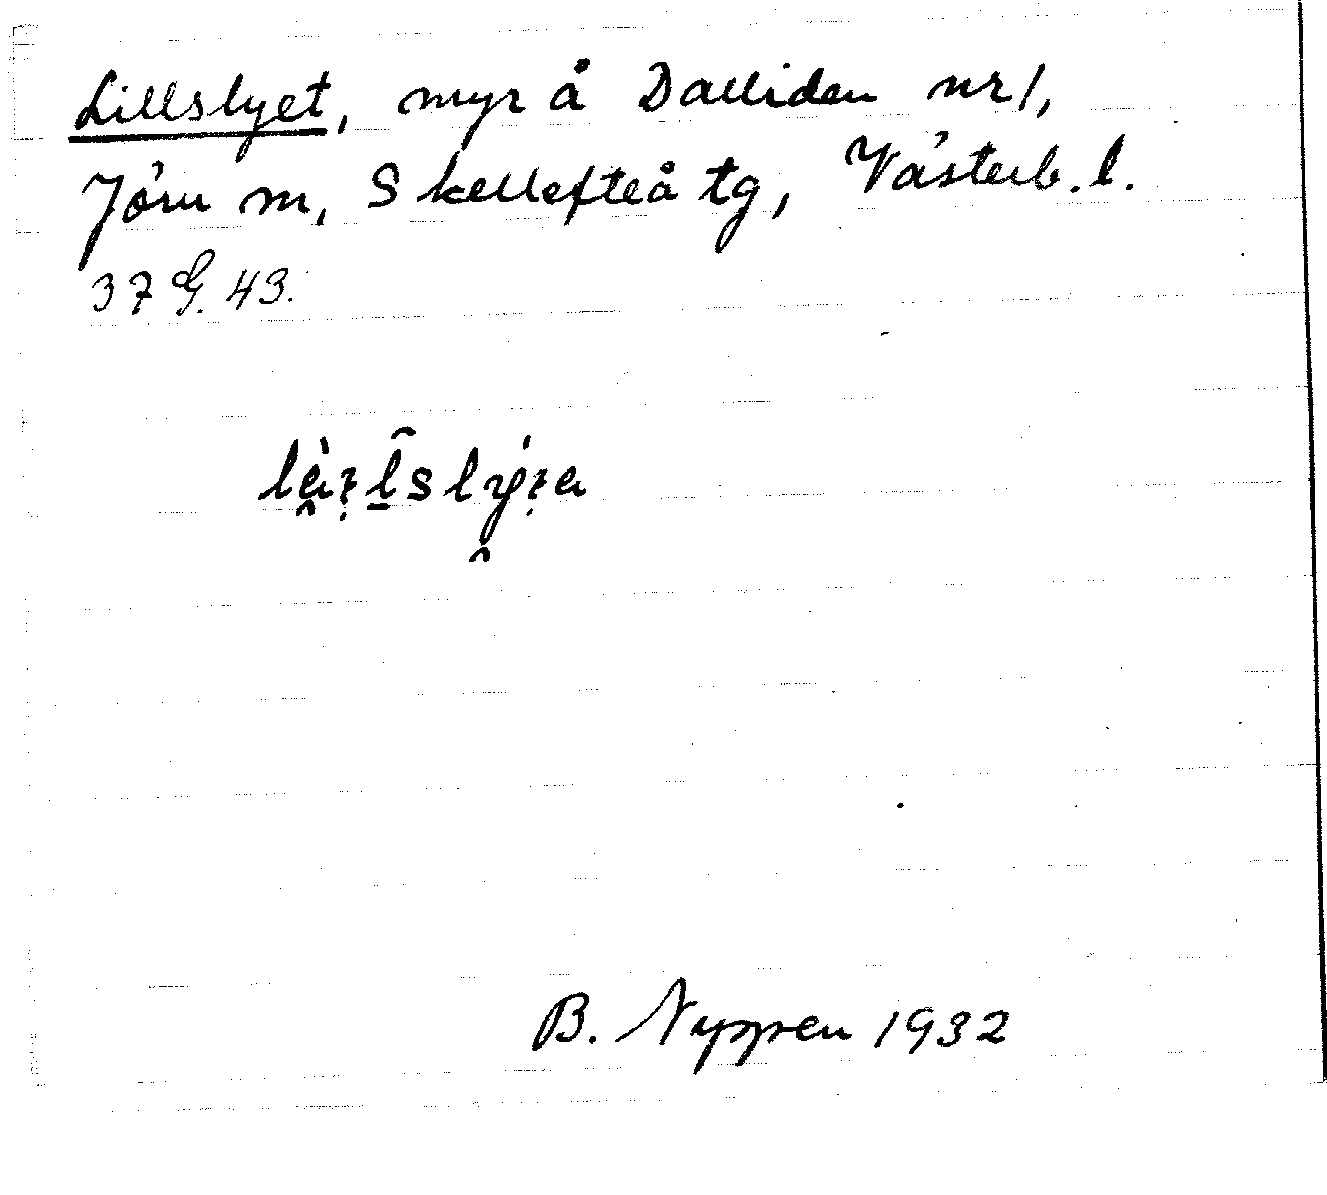 Lillslyet, myr å Dalliden nr 1,
Jörn m, Skellefteå tg, Västerb. l.
37 G. 43.
B. Nyppen 1932